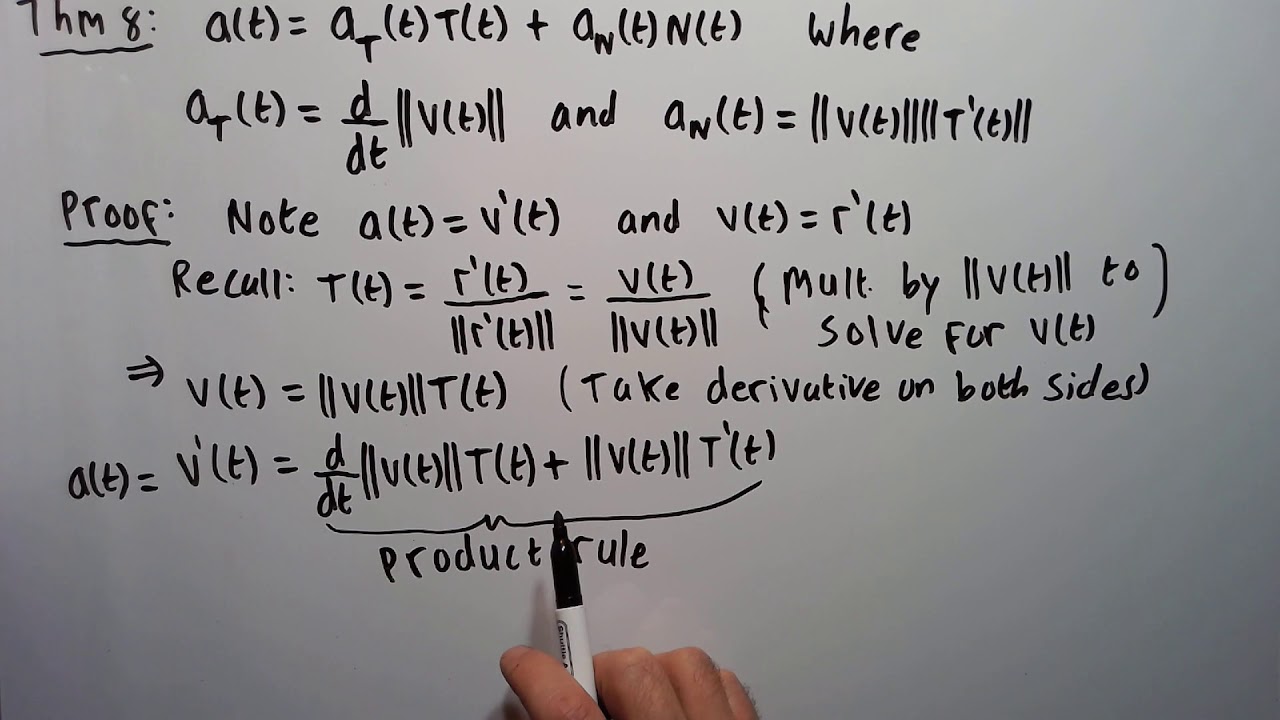 Thm 8: a(t) = a_T(t) T(t) + a_N(t) N(t) where
a_T(t) = d/dt ||V(t)|| and a_N(t) = ||V(t)|| ||T'(t)||
Proof: Note a(t) = V'(t) and V(t) = r'(t)
Recall: T(t) = r'(t)/||r'(t)|| = V(t)/||V(t)|| (Mult. by ||V(t)|| to
solve for V(t))
⇒ V(t) = ||V(t)|| T(t) (Take derivative on both sides)
a(t) = V'(t) = d/dt ||V(t)|| T(t) + ||V(t)|| T'(t)
product rule